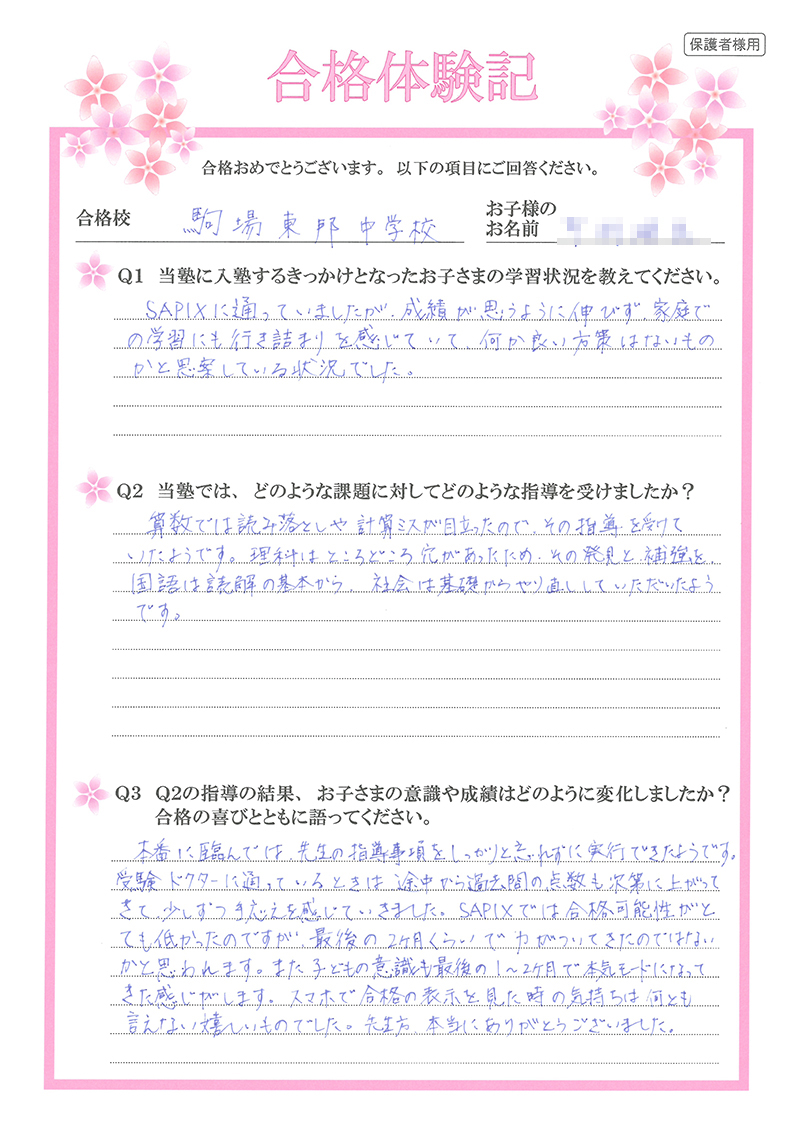 保護者様用
合格体験記
合格おめでとうございます。以下の項目にご回答ください。
合格校 駒場東邦中学校
お子様の
お名前
Q1 当塾に入塾するきっかけとなったお子さまの学習状況を教えてください。
SAPIXに通っていましたが、成績が思うように伸びず、家庭で
の学習にも行き詰まりを感じていて、何か良い方策はないもの
かと思案している状況でした。
Q2 当塾では、どのような課題に対してどのような指導を受けましたか？
算数では読み落としや計算ミスが目立ったので、その指導を受けて
いたようです。理科はところどころ穴があったため、その発見と補強を、
国語は読解の基本から、社会は基礎からやり直ししていただいたよう
です。
Q3 Q2の指導の結果、お子さまの意識や成績はどのように変化しましたか？
合格の喜びとともに語ってください。
本番に臨んでは、先生の指導事項をしっかりと忘れずに実行できたようです。
受験ドクターに通っているときは、途中から過去問の点数も次第に上がって
きて、少しずつ手応えを感じていきました。SAPIXでは合格可能性がと
ても低かったのですが、最後の2ヶ月くらいで力がついてきたのではない
かと思われます。また子どもの意識も最後の1～2ヶ月で本気モードになって
きた感じがします。スマホで合格の表示を見た時の気持ちは何とも
言えない嬉しいものでした。先生方、本当にありがとうございました。